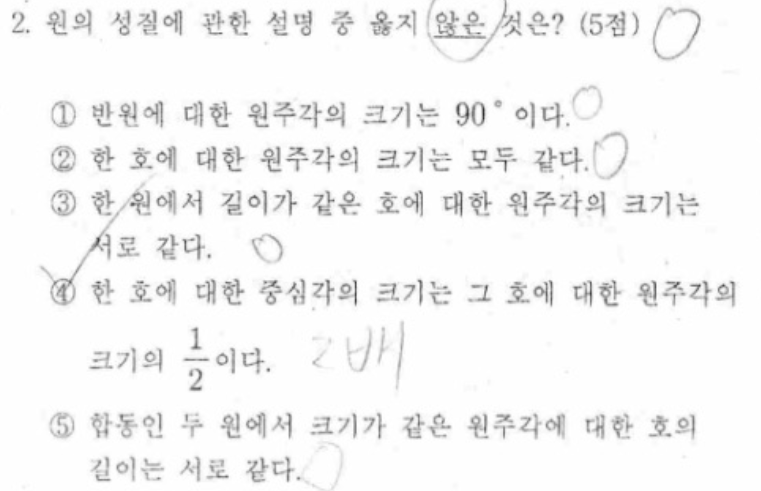 2. 원의 성질에 관한 설명 중 옳지 않은 것은? (5점)
① 반원에 대한 원주각의 크기는 90°이다.
② 한 호에 대한 원주각의 크기는 모두 같다.
③ 한 원에서 길이가 같은 호에 대한 원주각의 크기는
서로 같다.
④ 한 호에 대한 중심각의 크기는 그 호에 대한 원주각의
크기의 1/2이다. 2배
⑤ 합동인 두 원에서 크기가 같은 원주각에 대한 호의
길이는 서로 같다.